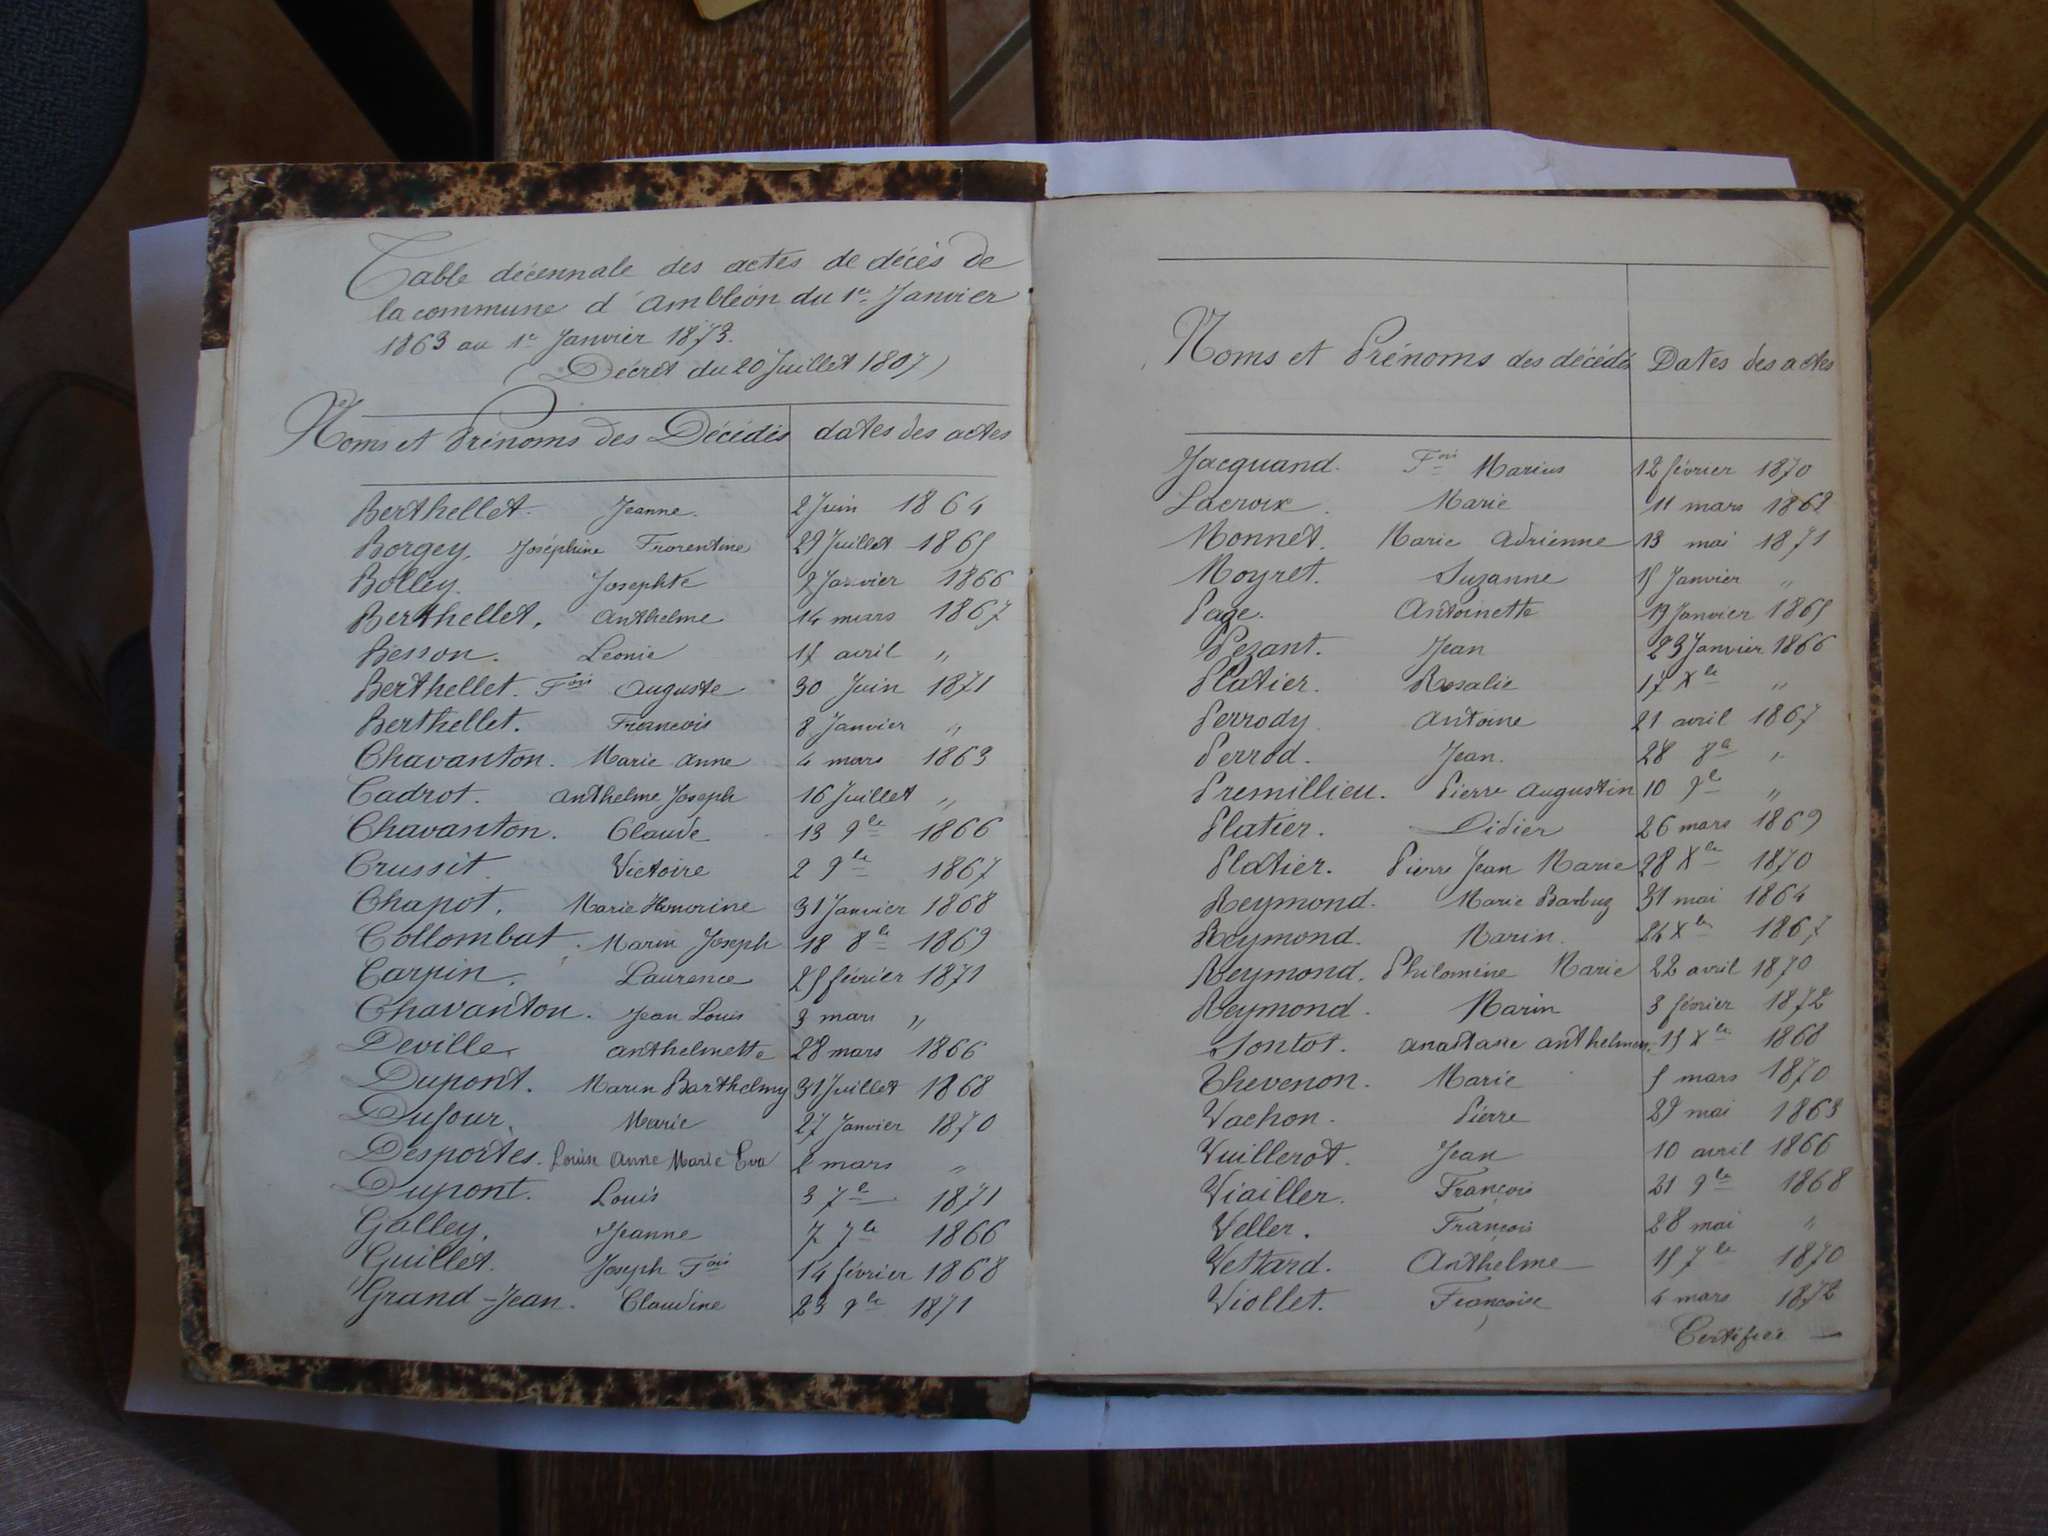 Table décennale des actes de décès de
la commune d'Ambléon du 1er Janvier
1863 au 1er Janvier 1873.
(Décret du 20 Juillet 1807)
Noms et Prénoms des Décédés dates des actes
Berthellet. Jeanne. 2 Juin 1864
Borgey, Joséphine Frorentine 29 Juillet 1865
Bolley. Josephte 2 Janvier 1866
Berthellet, Anthelme 14 mars 1867
Besson. Leonie 15 avril "
Berthellet. Fois Auguste 30 Juin 1871
Berthellet. François 8 Janvier "
Chavanton. Marie Anne 4 mars 1863
Cadrot. Anthelme Joseph 16 Juillet "
Chavanton. Claude 13 9bre 1866
Crussit. Victoire 2 9bre 1867
Chapot, Marie Honorine 31 Janvier 1868
Collombat. Marin Joseph 18 8bre 1869
Carpin, Laurence 25 février 1871
Chavanton. Jean Louis 3 mars "
Deville, anthelmette 28 mars 1866
Dupont. Marin Barthelmy 31 Juillet 1868
Dufour, Marie 27 Janvier 1870
Desportes. Louise Anne Marie Eva 2 mars "
Dupont. Louis 3 7bre 1871
Galley, Jeanne 7 7bre 1866
Guillet. Joseph Fois 14 février 1868
Grand-Jean. Claudine 23 9bre 1871
Noms et Prénoms des décédés Dates des actes
Jacquand. Fois Marius 12 février 1870
Lacroix. Marie 11 mars 1868
Monnet. Marie Adrienne 13 mai 1871
Moyret. Suzanne 15 Janvier "
Page. Antoinette 19 Janvier 1865
Pezant. Jean 23 Janvier 1866
Platier. Rosalie 17 Xbre "
Perrody Antoine 21 avril 1867
Perrod. Jean. 28 8bre "
Premillieu. Pierre Augustin 10 9bre "
Platier. Didier 26 mars 1869
Platier. Pierre Jean Marie 28 Xbre 1870
Reymond. Marie 31 mai 1864
Reymond. Marin. 24 Xbre 1867
Reymond. Philomine Marie 22 avril 1870
Reymond. Marin 3 février 1872
Sontot. anastasie 15 Xbre 1868
Thevenon. Marie 5 mars 1870
Vachon. Pierre 29 mai 1863
Vuillerot. Jean 10 avril 1866
Viailler. François 21 9bre 1868
Veller. François 28 mai "
Vettard. Anthelme 15 7bre 1870
Viollet. Françoise 4 mars 1872
Certifiée